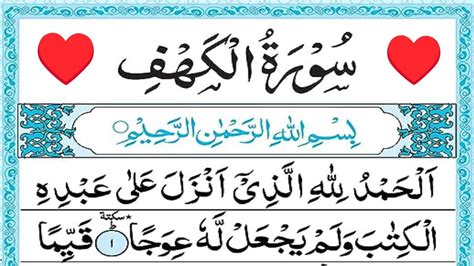 سُوْرَةُ الْكَهْفِ
بِسْمِ اللهِ الرَّحْمٰنِ الرَّحِيْمِ
اَلْحَمْدُ لِلّٰهِ الَّذِیْۤ اَنْزَلَ عَلٰی عَبْدِهِ
الْكِتٰبَ وَلَمْ يَجْعَلْ لَّهٗ عِوَجًا ١ سكتة قَيِّمًا